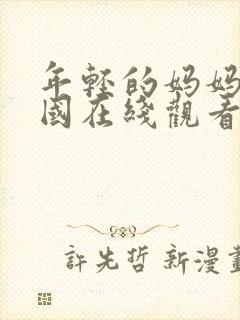 年轻的妈妈
國在綫觀看
許先哲 新漫畫